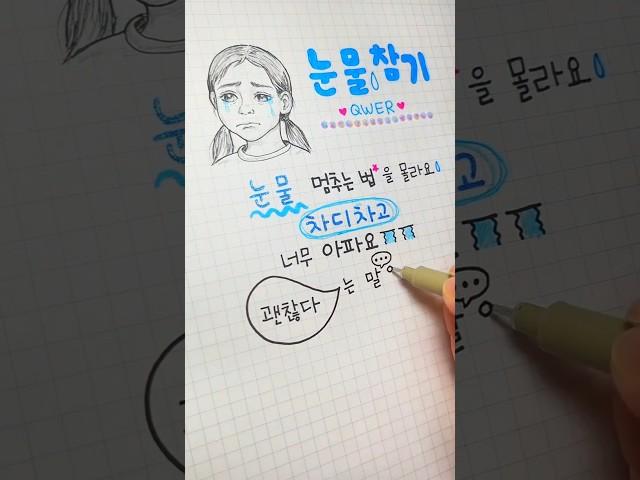 눈물참기
QWER
눈물 멈추는 법을 몰라요
차디차고
너무 아파요ㅠㅠ
괜찮다는 말